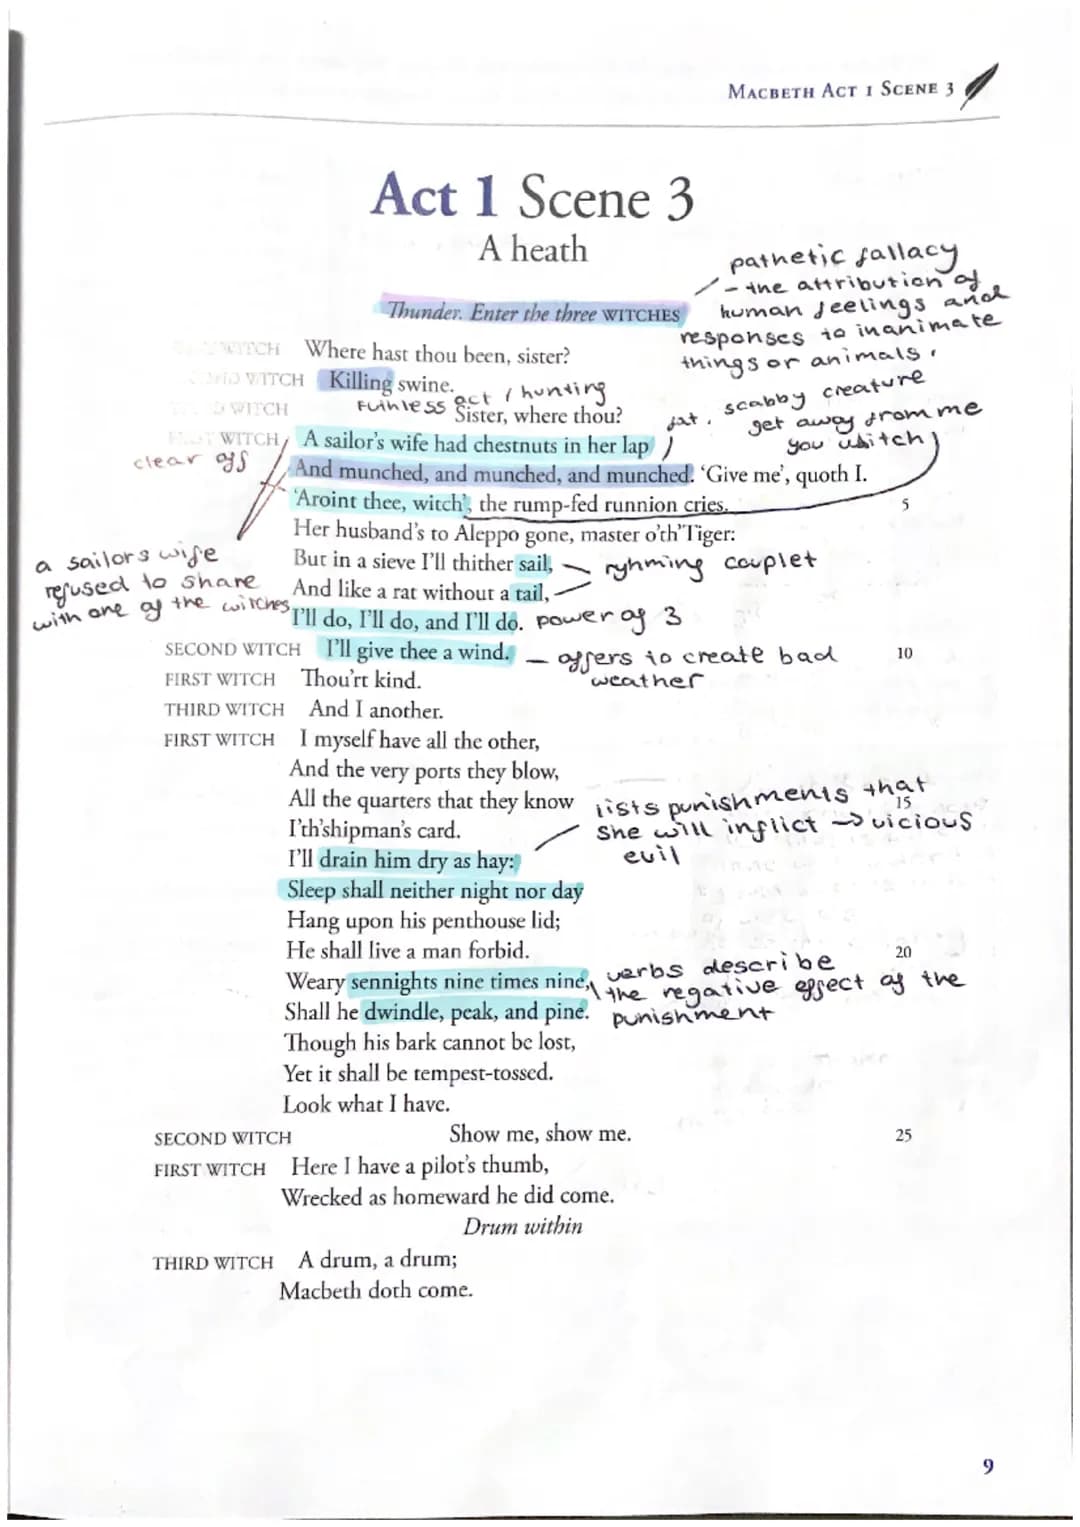 MACBETH ACT 1 SCENE 3
Act 1 Scene 3
A heath
pathetic fallacy
- the attribution of
human feelings and
responses to inanimate
things or animals.
Thunder. Enter the three WITCHES
WITCH Where hast thou been, sister?
WITCH Killing swine.
ruthless act / hunting
WITCH Sister, where thou?
fat, scabby creature
get away from me
you witch
WITCH A sailor's wife had chestnuts in her lap
clear off
And munched, and munched, and munched. ‘Give me’, quoth I.
‘Aroint thee, witch’, the rump-fed runnion cries.
5
Her husband's to Aleppo gone, master o'th'Tiger:
But in a sieve I'll thither sail,
ryhming couplet
And like a rat without a tail,
I'll do, I'll do, and I'll do.
power of 3
a sailors wife
refused to share
with one of the witches
SECOND WITCH I'll give thee a wind.
10
- offers to create bad
weather
FIRST WITCH Thou'rt kind.
THIRD WITCH And I another.
FIRST WITCH I myself have all the other,
And the very ports they blow,
All the quarters that they know
15
I'th'shipman's card.
lists punishments that
she will inflict → vicious
evil
I'll drain him dry as hay:
Sleep shall neither night nor day
Hang upon his penthouse lid;
He shall live a man forbid.
20
Weary sennights nine times nine,
Shall he dwindle, peak, and pine.
verbs describe
the negative effect of the
punishment
Though his bark cannot be lost,
Yet it shall be tempest-tossed.
Look what I have.
SECOND WITCH Show me, show me.
25
FIRST WITCH Here I have a pilot's thumb,
Wrecked as homeward he did come.
Drum within
THIRD WITCH A drum, a drum;
Macbeth doth come.
9